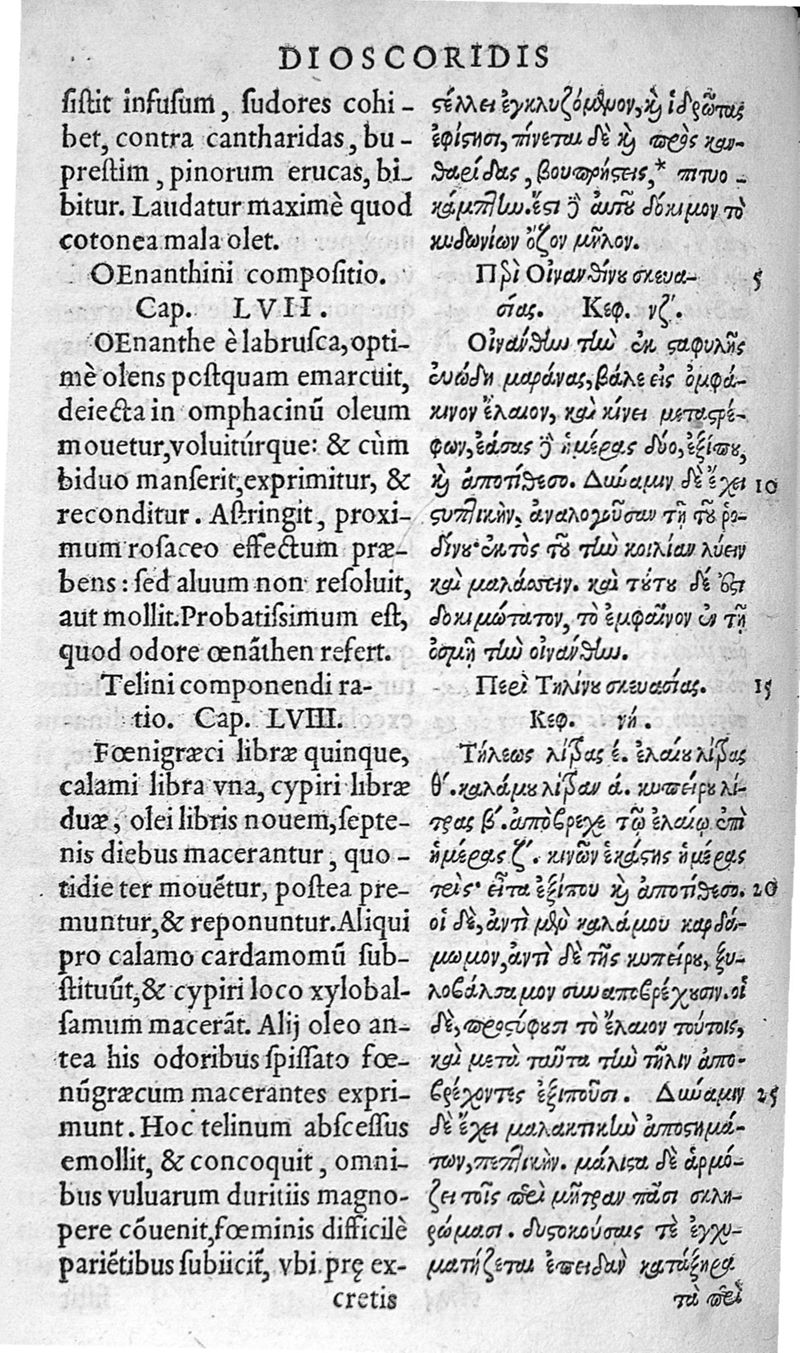 DIOSCORIDIS
sistit infusum, sudores cohi-
bet, contra cantharidas, bu-
prestim, pinorum erucas, bi-
bitur. Laudatur maximè quod
cotonea mala olet.
OEnanthini compositio.
Cap. LVII.
OEnanthe è labrusca, opti-
mè olens postquam emarcuit,
deiecta in omphacinū oleum
mouetur, voluitúrque: & cùm
biduo manserit, exprimitur, &
reconditur. Astringit, proxi-
mum rosaceo effectum præ-
bens: sed aluum non resoluit,
aut mollit. Probatissimum est,
quod odore œnāthen refert.
Telini componendi ra-
tio. Cap. LVIII.
Fœnigræci libræ quinque,
calami libra vna, cypiri libræ
duæ, olei libris nouem, septe-
nis diebus macerantur, quo-
tidie ter mouētur, postea pre-
muntur, & reponuntur. Aliqui
pro calamo cardamomū sub-
stituūt, & cypiri loco xylobal-
samum macerāt. Alij oleo an-
tea his odoribus spissato fœ-
nūgræcum macerantes expri-
munt. Hoc telinum abscessus
emollit, & concoquit, omni-
bus vuluarum duritiis magno-
pere cōuenit, fœminis difficilè
pariētibus subiicit̄, vbi prę ex-
cretis
στέλλει ἐγκλυζόμενον, καὶ ἱδρῶτας
ἐφίστησι, πίνεται δὲ καὶ πρὸς καν-
θαρίδας, βουπρήστεις,* πιτυο-
κάμπην. ἔστι δὲ αὐτοῦ δόκιμον τὸ
κυδωνίων ὄζον μῆλον.
Περὶ Οἰνανθίνου σκευα- 5
σίας. Κεφ. νζʹ.
Οἰνάνθην τὴν ἐκ σαφυλῆς
εὐώδη μαράνας, βάλε εἰς ὀμφά-
κινον ἔλαιον, καὶ κίνει μεταστρέ-
φων, ἐάσας δὲ ἡμέρας δύο, ἐξίπου,
καὶ ἀποτίθεσο. Δύναμιν δὲ ἔχει 10
στυπτικὴν, ἀναλογοῦσαν τῇ τοῦ ῥο-
δίνου· ἐκτὸς τοῦ τὴν κοιλίαν λύειν
καὶ μαλάσσειν. καὶ τούτου δέ ἐστι
δοκιμώτατον, τὸ ἐμφαῖνον ἐν τῇ
ὀσμῇ τὴν οἰνάνθην.
Περὶ Τηλίνου σκευασίας. 15
Κεφ. νή.
Τήλεως λίτρας έ. ἐλαίου λίτρας
θʹ. καλάμου λίτραν ά. κυπείρου λί-
τρας βʹ. ἀπόβρεχε τῷ ἐλαίῳ ἐπὶ
ἡμέρας ζʹ. κινῶν ἑκάστης ἡμέρας
τρεῖς· εἶτα ἐξίπου καὶ ἀποτίθεσο. 20
οἱ δὲ, ἀντὶ μὲν καλάμου καρδά-
μωμον, ἀντὶ δὲ τῆς κυπείρου, ξυ-
λοβάλσαμον συναποβρέχουσιν. οἱ
δὲ, προστύφουσι τὸ ἔλαιον τούτοις,
καὶ μετὰ ταῦτα τὴν τῆλιν ἀπο-
βρέχοντες ἐξιποῦσι. Δύναμιν 25
δὲ ἔχει μαλακτικὴν ἀποστημά-
των, πεπτικήν. μάλιστα δὲ ἁρμό-
ζει τοῖς περὶ μήτραν πᾶσι σκλη-
ρώμασι. δυστοκούσαις τὲ ἐγχυ-
ματίζεται ἐπειδὰν κατάξηρα
τὰ περὶ